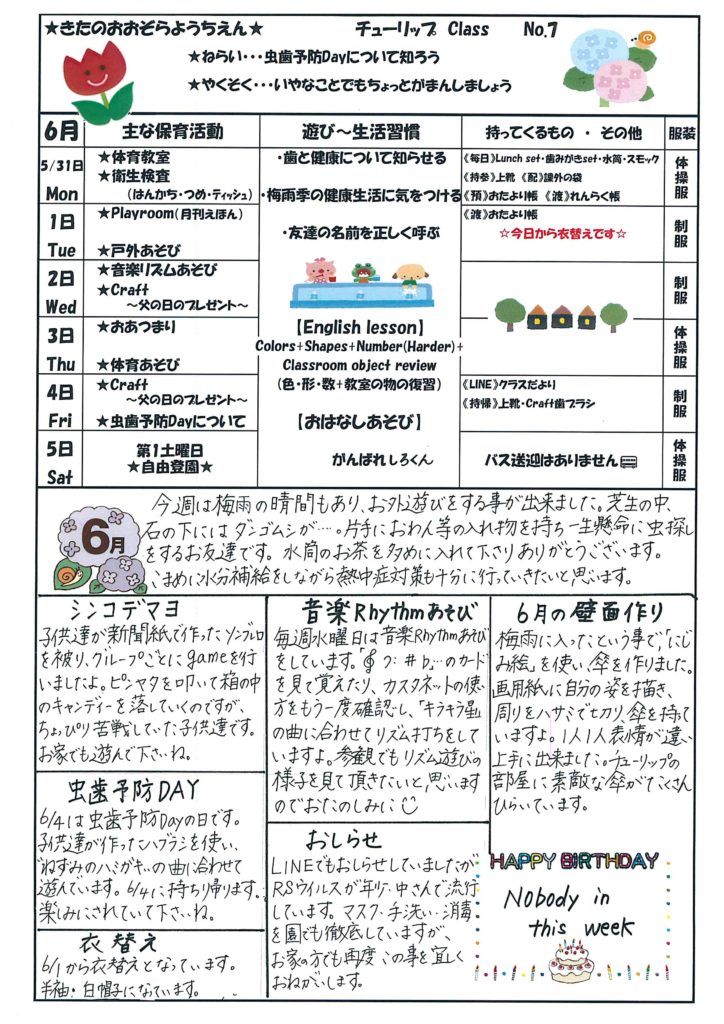 ★きたのおおぞらようちえん★ チューリップ Class No.7
★ねらい・・・虫歯予防Dayについて知ろう
★やくそく・・・いやなことでもちょっとがまんしましょう
6月 主な保育活動 遊び～生活習慣 持ってくるもの ・ その他 服装
5/31日 Mon
★体育教室
★衛生検査
(はんかち・つめ・ティッシュ)
・歯と健康について知らせる
・梅雨季の健康生活に気をつける
《毎日》Lunch set・歯みがきset・水筒・スモック
《持参》上靴 《配》課外の袋
《預》おたより帳 《渡》れんらく帳
体操服
1日 Tue
★Playroom(月刊えほん)
★戸外あそび
・友達の名前を正しく呼ぶ
《渡》おたより帳
☆今日から衣替えです☆
制服
2日 Wed
★音楽リズムあそび
★Craft
～父の日のプレゼント～
制服
3日 Thu
★おあつまり
★体育あそび
【English lesson】
Colors+Shapes+Number(Harder)+
Classroom object review
(色・形・数+教室の物の復習)
体操服
4日 Fri
★Craft
～父の日のプレゼント～
★虫歯予防Dayについて
【おはなしあそび】
《LINE》クラスだより
《持帰》上靴・Craft歯ブラシ
制服
5日 Sat
第1土曜日
★自由登園★
がんばれしろくん
バス送迎はありません
体操服
6月
今週は梅雨の晴間もあり、お外遊びをする事が出来ました。芝生の中、
石の下にはダンゴムシが…。片手におわん等の入れ物を持ち一生懸命に虫探し
をするお友達です。水筒のお茶を多めに入れて下さりありがとうございます。
こまめに水分補給をしながら熱中症対策も十分に行っていきたいと思います。
シンコデマヨ
子供達が新聞紙で作ったソンブレロ
を被り、グループごとにgameを行
いましたよ。ピニャタを叩いて箱の中
のキャンディーを落していくのですが、
ちょっぴり苦戦していた子供達です。
お家でも遊んで下さいね。
虫歯予防DAY
6/4は虫歯予防Dayの日です。
子供達が作ったハブラシを使い、
"ねずみのハミガキ"の曲に合わせて
遊んでいます。6/4に持ち帰ります。
楽しみにされていて下さいね。
衣替え
6/1から衣替えとなっています。
半袖・白帽子になっています。
音楽Rhythmあそび
毎週水曜日は音楽Rhythmあそび
をしています。「𝄞 𝄢 # ♭…のカード
を見て覚えたり、カスタネットの使い
方をもう一度確認し、「キラキラ星」
の曲に合わせてリズム打ちをして
いますよ。参観でもリズム遊びの
様子を見て頂きたいと思います
のでおたのしみに
おしらせ
LINEでもおしらせしていましたが
RSウイルスが年少・中さんで流行
しています。マスク・手洗い・消毒
を園でも徹底していますが、
お家の方でも再度この事を宜しく
おねがいします。
6月の壁面作り
梅雨に入ったという事で、「にじ
み絵」を使い、傘を作りました。
画用紙に自分の姿を描き、
周りをハサミで切り、傘を持って
いますよ。1人1人表情が違い
上手に出来ました。チューリップの
部屋に素敵な傘がたくさん
ひらいています。
HAPPY BIRTHDAY
Nobody in
this week